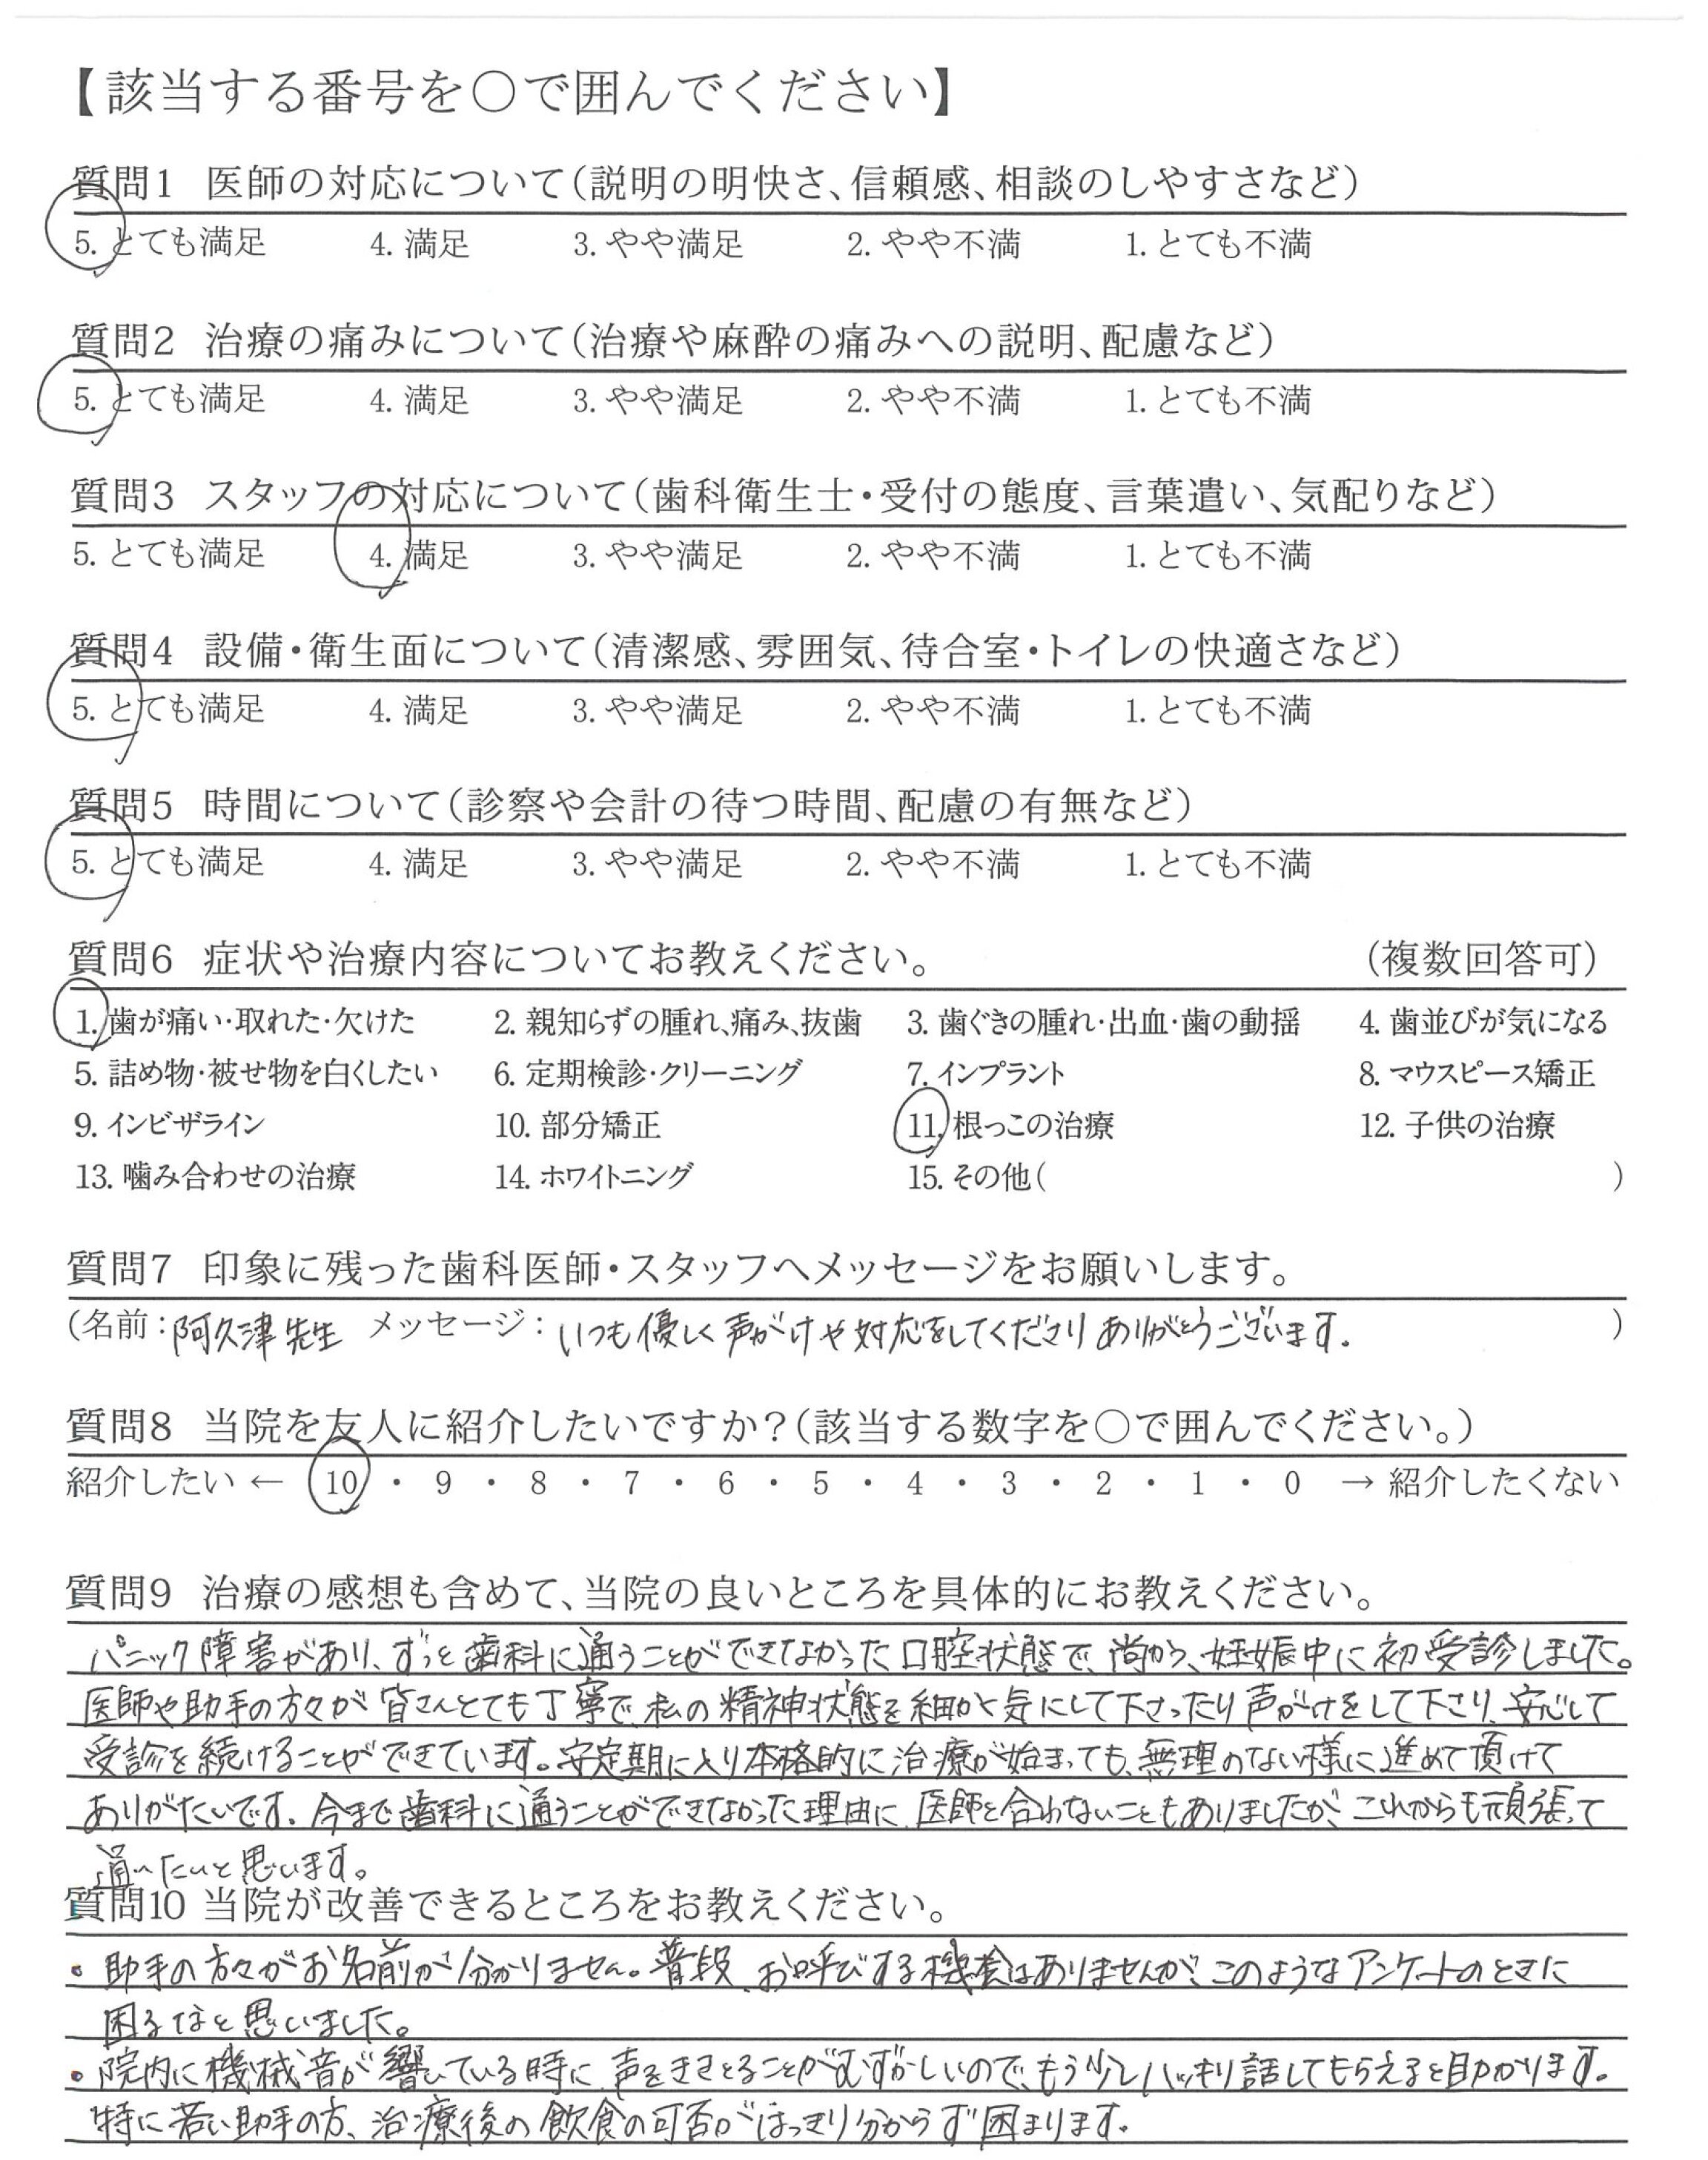 【該当する番号を○で囲んでください】
質問1 医師の対応について（説明の明快さ、信頼感、相談のしやすさなど）
5. とても満足 4. 満足 3. やや満足 2. やや不満 1. とても不満
質問2 治療の痛みについて（治療や麻酔の痛みへの説明、配慮など）
5. とても満足 4. 満足 3. やや満足 2. やや不満 1. とても不満
質問3 スタッフの対応について（歯科衛生士・受付の態度、言葉遣い、気配りなど）
5. とても満足 4. 満足 3. やや満足 2. やや不満 1. とても不満
質問4 設備・衛生面について（清潔感、雰囲気、待合室・トイレの快適さなど）
5. とても満足 4. 満足 3. やや満足 2. やや不満 1. とても不満
質問5 時間について（診察や会計の待つ時間、配慮の有無など）
5. とても満足 4. 満足 3. やや満足 2. やや不満 1. とても不満
質問6 症状や治療内容についてお教えください。 （複数回答可）
1. 歯が痛い・取れた・欠けた 2. 親知らずの腫れ、痛み、抜歯 3. 歯ぐきの腫れ・出血・歯の動揺 4. 歯並びが気になる
5. 詰め物・被せ物を白くしたい 6. 定期検診・クリーニング 7. インプラント 8. マウスピース矯正
9. インビザライン 10. 部分矯正 11. 根っこの治療 12. 子供の治療
13. 噛み合わせの治療 14. ホワイトニング 15. その他（ ）
質問7 印象に残った歯科医師・スタッフへメッセージをお願いします。
（名前：阿久津先生 メッセージ：いつも優しく声がけや対応をしてくださりありがとうございます. ）
質問8 当院を友人に紹介したいですか？（該当する数字を○で囲んでください。）
紹介したい ← 10 ・ 9 ・ 8 ・ 7 ・ 6 ・ 5 ・ 4 ・ 3 ・ 2 ・ 1 ・ 0 → 紹介したくない
質問9 治療の感想も含めて、当院の良いところを具体的にお教えください。
パニック障害があり、ずっと歯科に通うことができなかった口腔状態で、尚かつ、妊娠中に初受診しました。
医師や助手の方々が皆さんとても丁寧で、私の精神状態を細かく気にして下さったり声がけをして下さり、安心して
受診を続けることができています。安定期に入り本格的に治療が始まっても、無理のない様に進めて頂けて
ありがたいです. 今まで歯科に通うことができなかった理由に、医師と合わないこともありましたが、これからも頑張って
通いたいと思います。
質問10 当院が改善できるところをお教えください。
・助手の方々がお名前が分かりません。普段、お呼びする機会はありませんが、このようなアンケートのときに
困るなと思いました。
・院内に機械音が響いている時に、声をききとることがむずかしいので、もう少しハッキリ話してもらえると助かります.
特に若い助手の方、治療後の飲食の可否がはっきり分からず困ります.